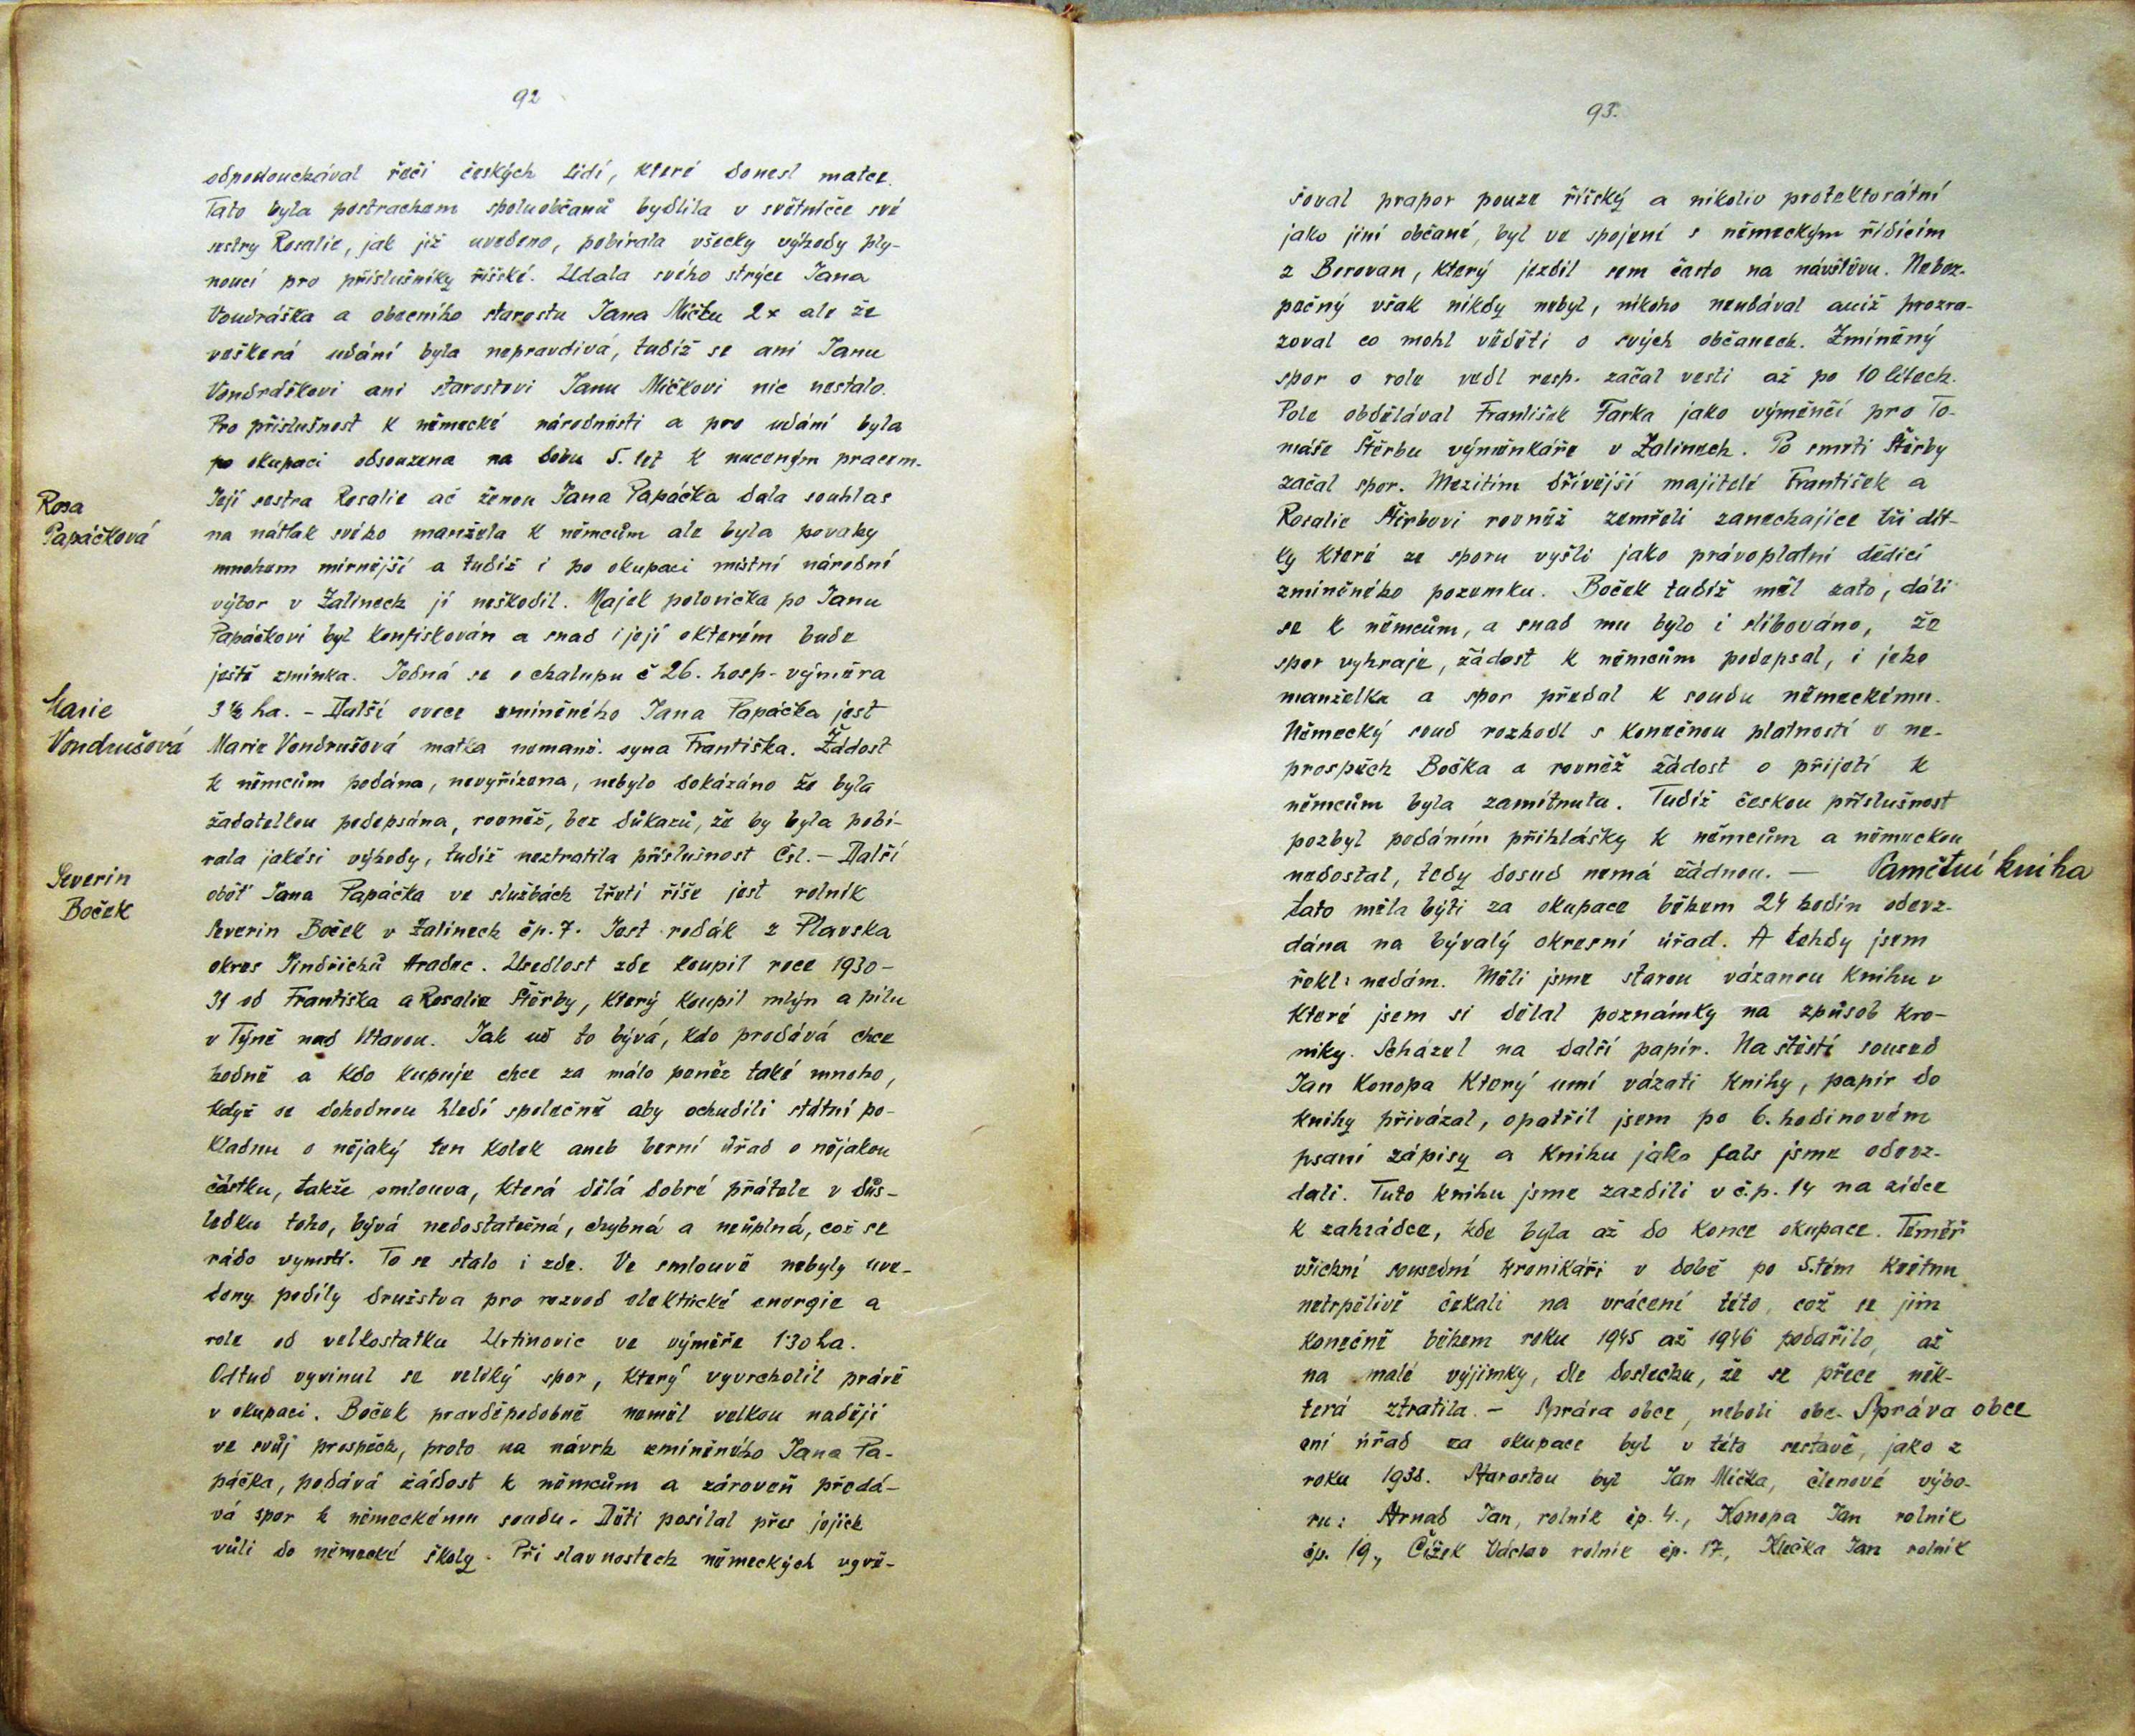 92
odposlouchával řeči českých lidí, které donesl matce.
Tato byla postrachem spoluobčanů bydlila v světničce své
sestry Rosalie, jak již uvedeno, pobírala všecky výhody ply-
noucí pro příslušníky říšské. Udala svého strýce Jana
Vondráška a obecního starostu Jana Mičku 2x ale že
veškerá udání byla nepravdivá, tudíž se ani Janu
Vondráškovi ani starostovi Janu Mičkovi nic nestalo.
Pro příslušnost k německé národnosti a pro udání byla
po okupaci odsouzena na dobu 5. let k nuceným pracem.
Rosa
Papáčková
Její sestra Rosalie ač ženou Jana Papáčka dala souhlas
na nátlak svého manžela k němcům ale byla povahy
mnohem mírnější a tudíž i po okupaci místní národní
výbor v Žalinech jí neškodil. Majek polovička po Janu
Papáčkovi byl konfiskován a snad i její okterém bude
ještě zmínka. Jedná se o chalupu č 26. hosp. výměra
Marie
Vondrušová
3 ½ ha. - Další ovece zmíněného Jana Papáčka jest
Marie Vondrušová matka nemanž. syna Františka. Žádost
k němcům podána, nevyřízena, nebylo dokázáno že byla
žadatelkou podepsána, rovněž, bez důkazů, že by byla pobí-
rala jakési výhody, tudíž neztratila příslušnost Čsl. - Další
Severin
Boček
oběť Jana Papáčka ve službách třetí říše jest rolník
Severin Boček v Žalinech čp. 7. Jest rodák z Plavska
okres Jindřichů Hradec. Usedlost zde koupil roce 1930-
31 od Františka a Rosalie Štěrby, který koupil mlýn a pilu
v Týně nad Vltavou. Jak už to bývá, kdo prodává chce
hodně a kdo kupuje chce za málo peněz také mnoho,
když se dohodnou hledí společně aby ochudili státní po-
kladnu o nějaký ten kolek aneb berní úřad o nějakou
částku, takže smlouva, která dělá dobré přátele v důs-
ledku toho, bývá nedostatečná, chybná a neúplná, což se
rádo vymstí. To se stalo i zde. Ve smlouvě nebyly uve-
deny podíly družstva pro rozvod elektrické energie a
role od velkostatku Urtinovic ve výměře 1·30 ha.
Odtud vyvinul se veliký spor, který vyvrcholil právě
v okupaci. Boček pravděpodobně neměl velkou naději
ve svůj prospěch, proto na návrh zmíněného Jana Pa-
páčka, podává žádost k němcům a zároveň předá-
vá spor k německému soudu. Děti posílal přes jejich
vůli do německé školy. Při slavnostech německých vyvě-
93.
šoval prapor pouze říšský a nikoliv protektorátní
jako jiní občané, byl ve spojení s německým řídícím
z Borovan, který jezdil sem často na návštěvu. Nebez-
pečný však nikdy nebyl, nikoho neudával aniž prozra-
zoval co mohl věděti o svých občanech. Zmíněný
spor o role vedl resp. začal vésti až po 10 létech.
Pole obdělával František Farka jako výměnčí pro To-
máše Štěrbu výměnkáře v Žalinech. Po smrti Štěrby
začal spor. Mezitím dřívější majitelé František a
Rosalie Štěrbovi rovněž zemřeli zanechajíce tři dít-
ky které ze sporu vyšli jako právoplatní dědicí
zmíněného pozemku. Boček tudíž měl zato, dáli
se k němcům, a snad mu bylo i slibováno, že
spor vyhraje, žádost k němcům podepsal, i jeho
manželka a spor předal k soudu německému.
Německý soud rozhodl s konečnou platností v ne-
prospěch Bočka a rovněž žádost o přijetí k
němcům byla zamítnuta. Tudíž českou příslušnost
pozbyl podáním přihlášky k němcům a německou
nedostal, tedy dosud nemá žádnou. - Pamětní kniha
tato měla býti za okupace během 24 hodin odevz-
dána na bývalý okresní úřad. A tehdy jsem
řekl: nedám. Měli jsme starou vázanou knihu v
které jsem si dělal poznámky na způsob kro-
niky. Scházel na další papír. Na štěstí soused
Jan Konopa který umí vázati knihy, papír do
knihy přivázal, opatřil jsem po 6. hodinovém
psaní zápisy a knihu jako fals jsme odevz-
dali. Tuto knihu jsme zazdili v č.p. 14 na zídce
k zahrádce, kde byla až do konce okupace. Téměř
všichní sousední kronikáři v době po 5.tém květnu
netrpělivě čekali na vrácení této, což se jim
konečně během roku 1945 až 1946 podařilo, až
na malé výjimky, dle doslechu, že se přece něk-
terá ztratila. - Správa obce, neboli obe- Správa obce
cní úřad za okupace byl v této sestavě, jako z
roku 1938. Starostou byl Jan Mička, členové výbo-
ru: Hrnad Jan, rolník čp. 4., Konopa Jan rolník
čp. 19., Čížek Václav rolník čp. 17., Klečka Jan rolník